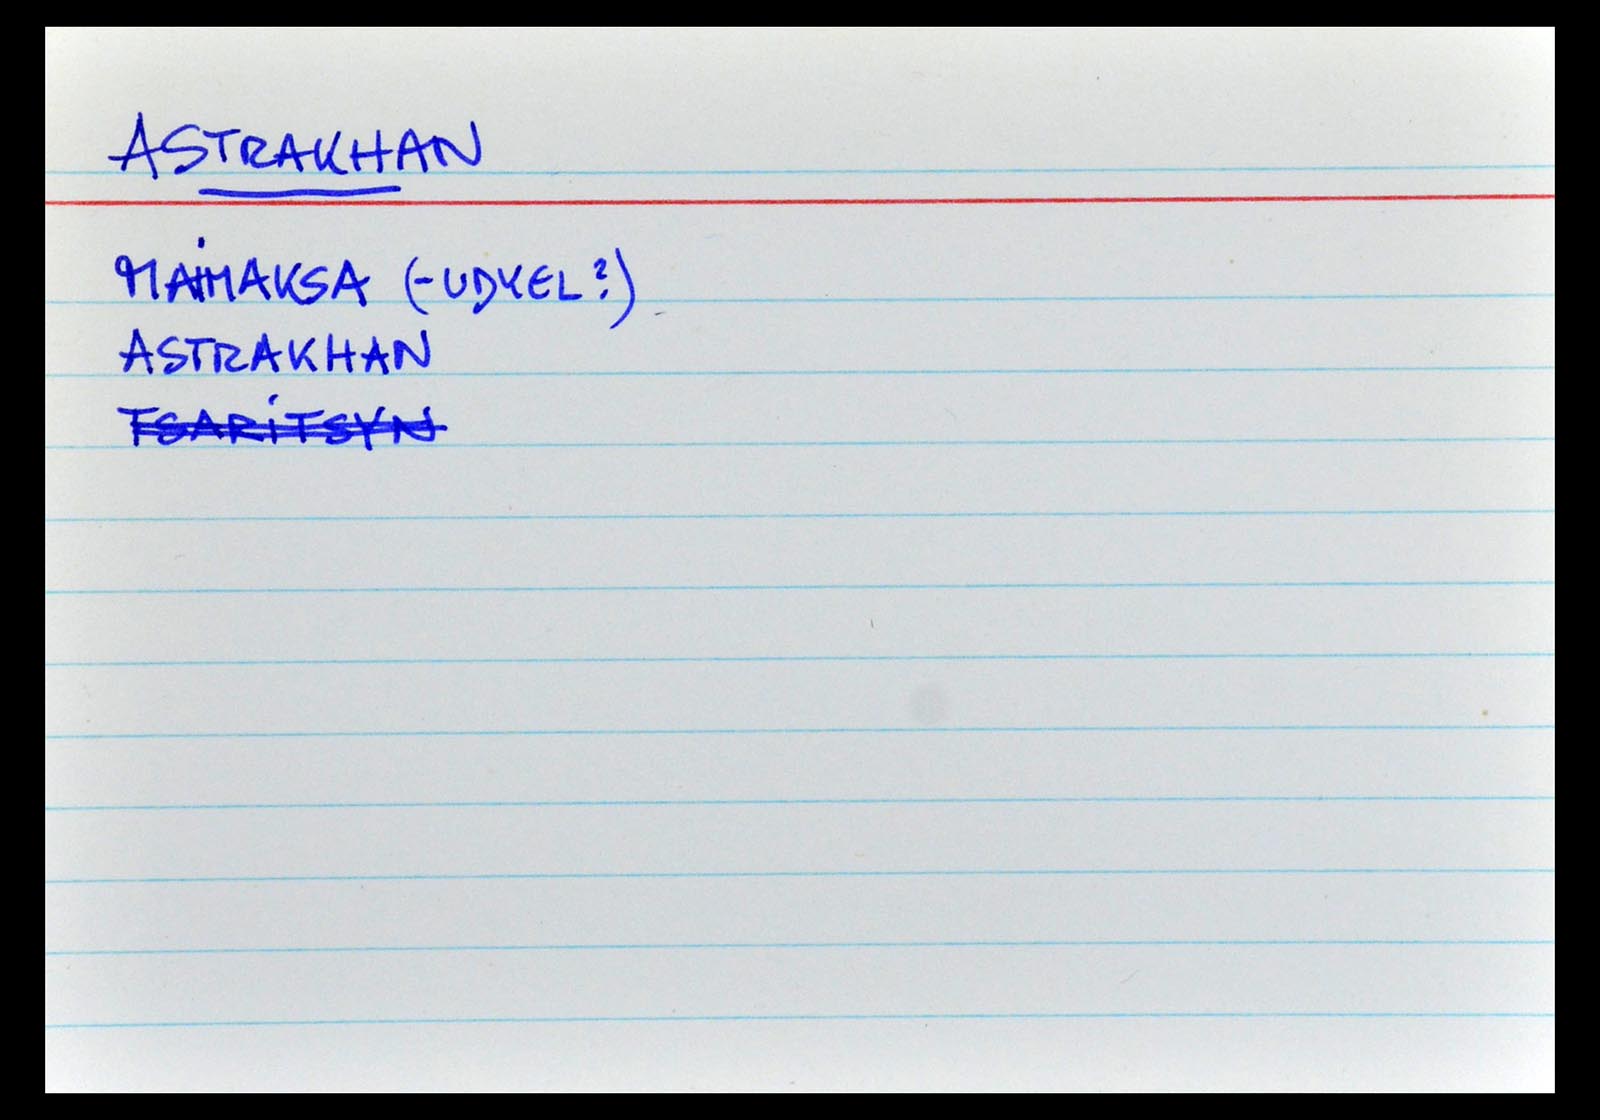 ASTRAKHAN
MAIMAKSA (-UDYEL?)
ASTRAKHAN
TSARITSYN